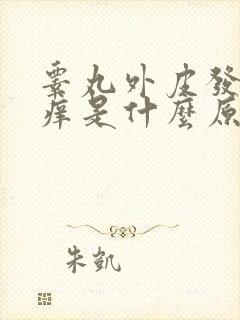 睾丸外皮發
痒是什麼原
朱凱